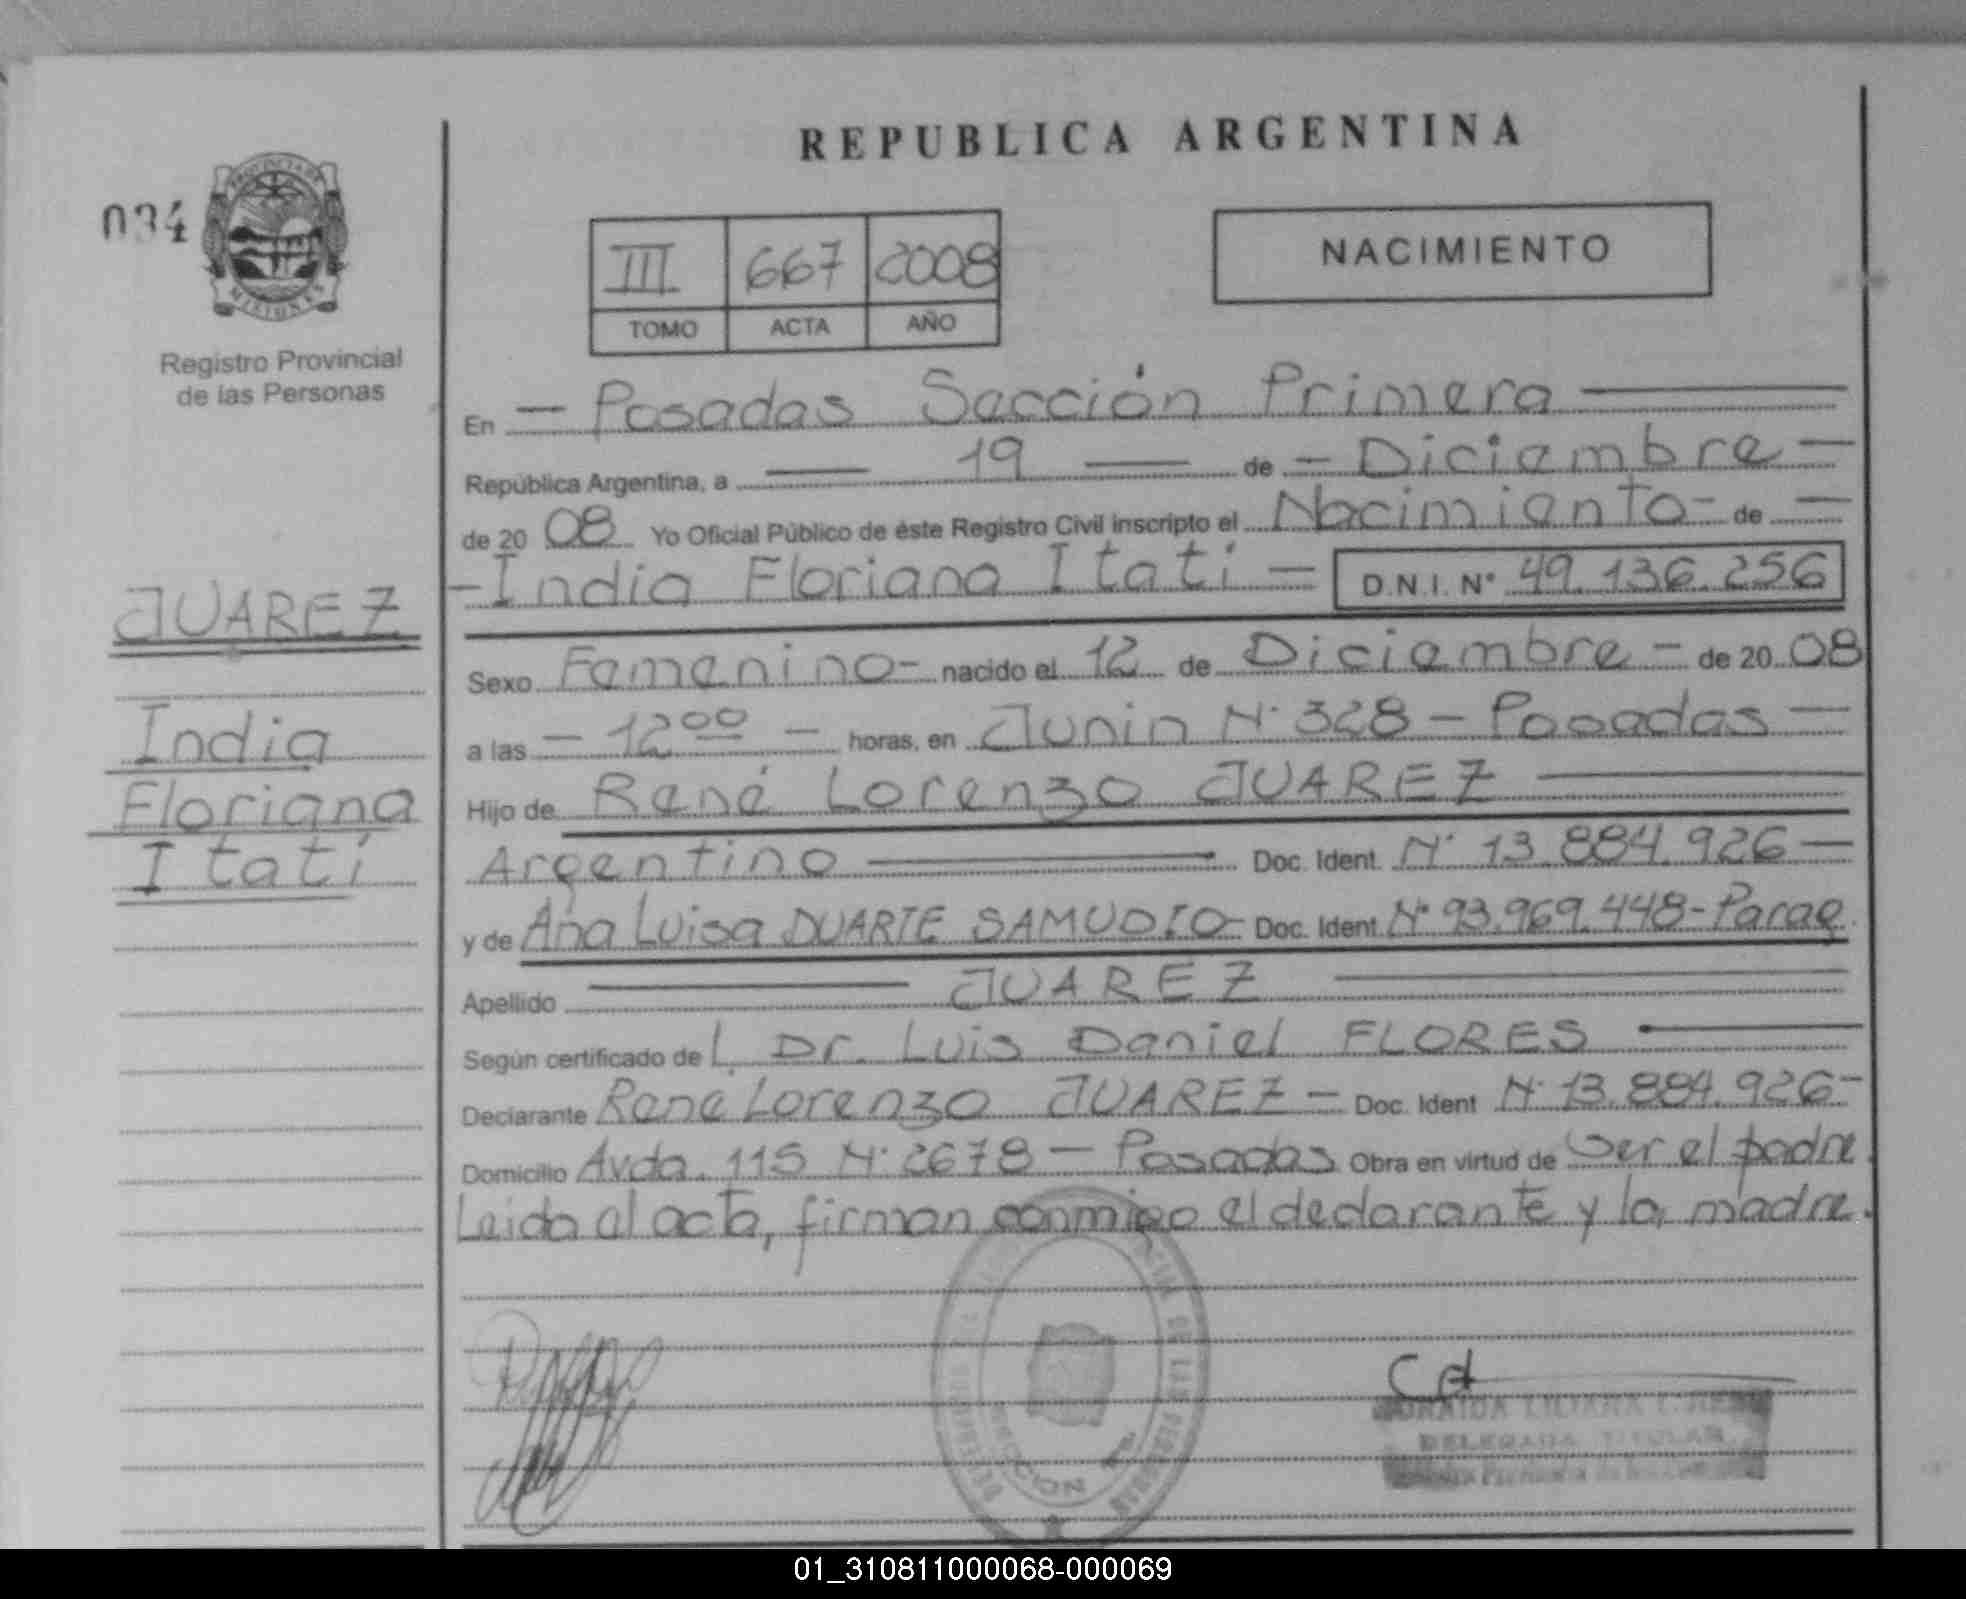 REPUBLICA ARGENTINA
034
PROVINCIA DE
MISIONES
Registro Provincial
de las Personas
III 667 2008
TOMO ACTA AÑO
NACIMIENTO
En - Posadas Sección Primera
República Argentina, a 19 de - Diciembre -
de 20 08 Yo Oficial Público de éste Registro Civil inscripto el Nacimiento - de -
- India Floriana Itatí - D.N.I. N° 49.136.256
JUAREZ
India
Floriana
Itatí
Sexo Femenino - nacido el 12 de Diciembre - de 20 08
a las - 12 00 - horas, en Junin N° 328 - Posadas -
Hijo de René Lorenzo JUAREZ
Argentino Doc. Ident. N° 13.884.926 -
y de Ana Luisa DUARTE SAMUDIO - Doc. Ident. N° 93.969.448 - Parag.
Apellido JUAREZ
Según certificado de l. Dr. Luis Daniel FLORES
Declarante René Lorenzo JUAREZ - Doc. Ident N° 13.884.926 -
Domicilio Avda. 115 N° 2678 - Posadas Obra en virtud de ser el padre.
Leida el acta, firman conmigo el declarante y la madre.
DELEGADA TITULAR
01_310811000068-000069